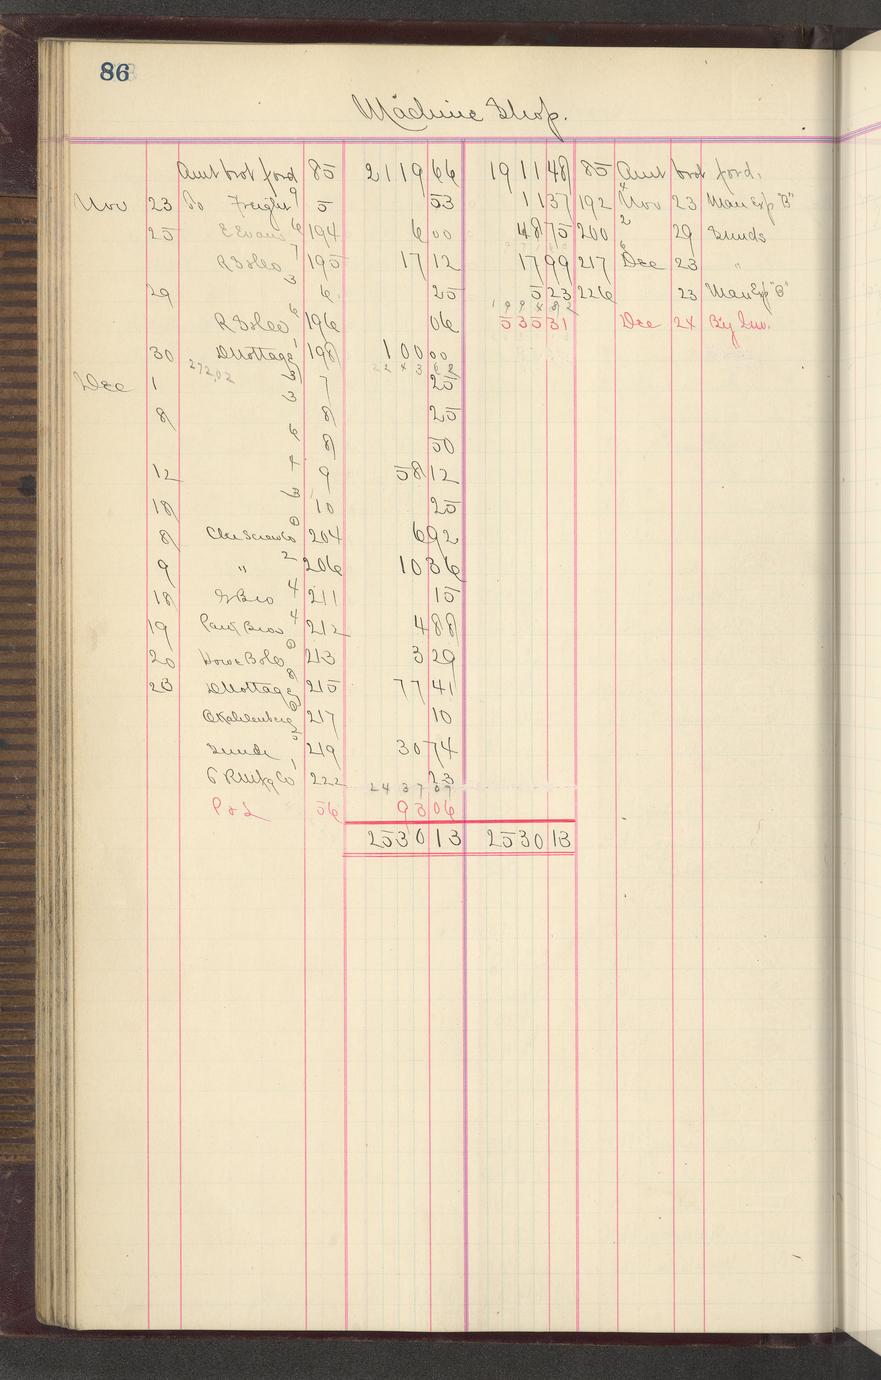 86
Machine Shop.
Amt brot ford 85 2119 66 1911 48 85 Amt brot ford.
Nov 23 To Freight 9 5 53 11 37 192 4 Nov 23 Man Exp "B"
25 E Evans 6 194 6 00 48 75 200 2 29 Sunds
7 195 17 12 17 99 217 6 Dec 23 "
29 3 6 25 5 23 226 23 Man Exp "B"
6 196 06 1994 82 535 31 Dec 24 By Inv.
30 DMottage 1 198 100 00
272.02 2243 62
Dec 1 3 7 25
8 3 8 25
6 8 50
12 4 9 58 12
18 3 10 25
8 204 6 92
9 " 2 206 10 36
18 4 211 15
19 4 212 4 88
20 213 3 29
23 DMottage 8 215 77 41
217 10
Sunds 5 219 30 74
1 222 23
2437 07
P & L 56 93 06
2530 13 2530 13